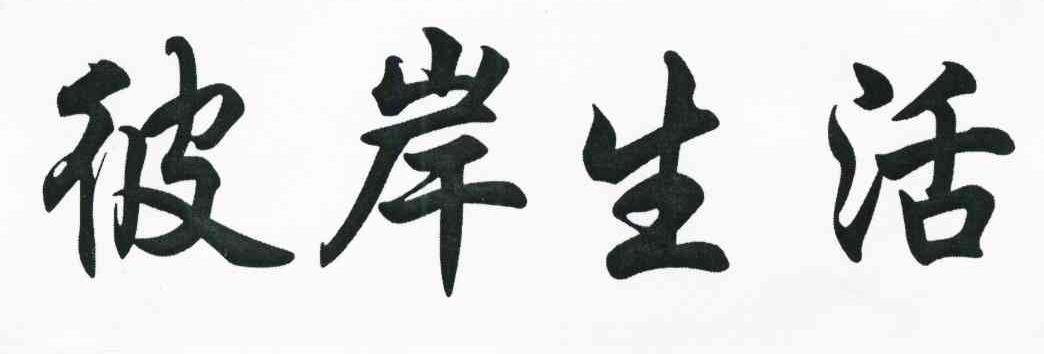 彼岸生活